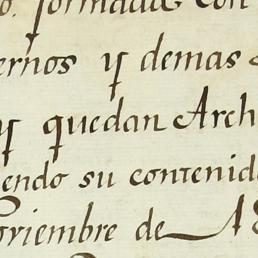 o. formada con
ernos y demas
y quedan Arch
endo su contenid
oviembre de 18